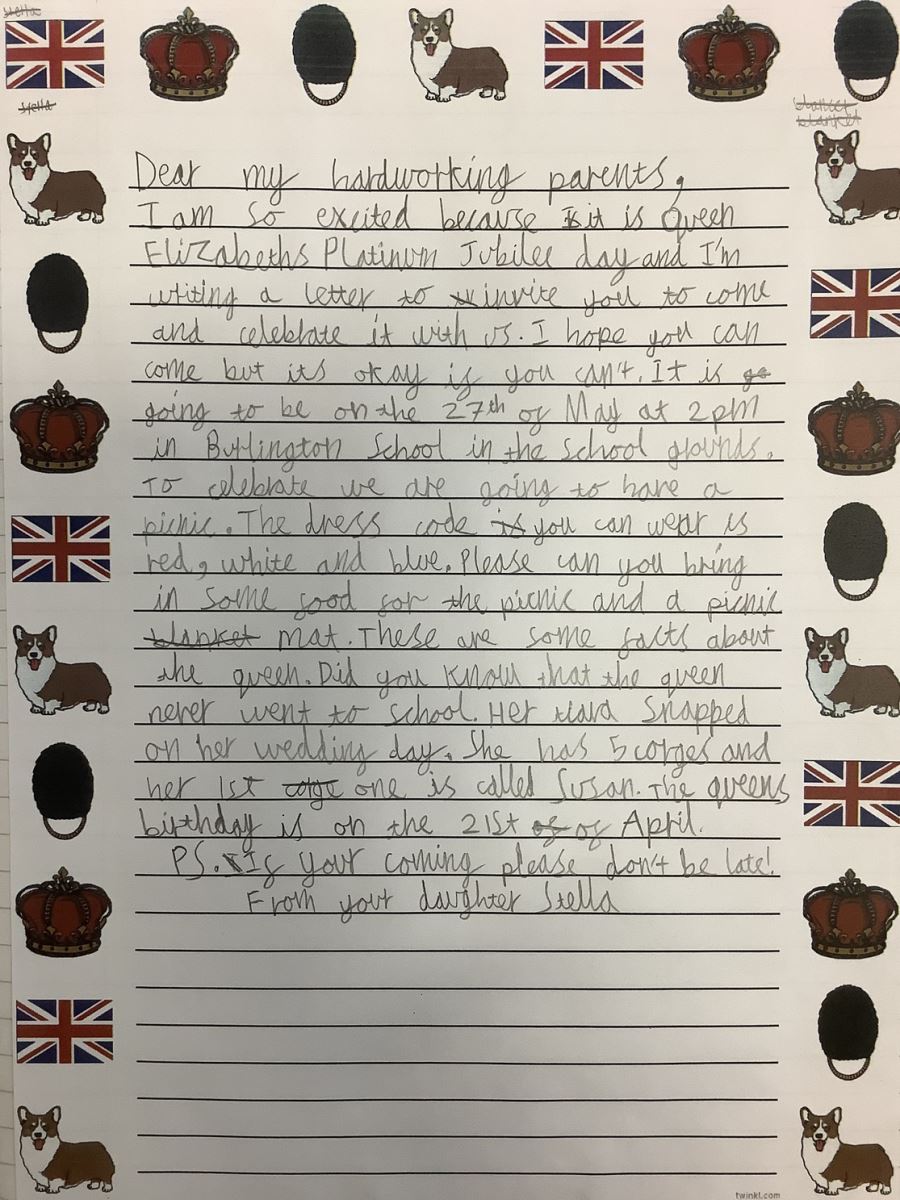 stella
stella
blanket
blanket
Dear my hardworking parents,
I am so excited because is it is Queen
Elizabeths Platinum Jubilee day and I'm
writing a letter to invite you to come
and celebrate it with us. I hope you can
come but its okay if you can't. It is go
going to be on the 27th of May at 2pm
in Burlington School in the school grounds.
To celebrate we are going to have a
picnic. The dress code is you can wear is
red, white and blue. Please can you bring
in some food for the picnic and a picnic
blanket mat. These are some facts about
the queen. Did you know that the queen
never went to school. Her tiara snapped
on her wedding day. She has 5 corges and
her 1st corge one is called Susan. The queens
birthday is on the 21st of of April.
PS. If your coming please don't be late!
From your daughter Stella
twinkl.com